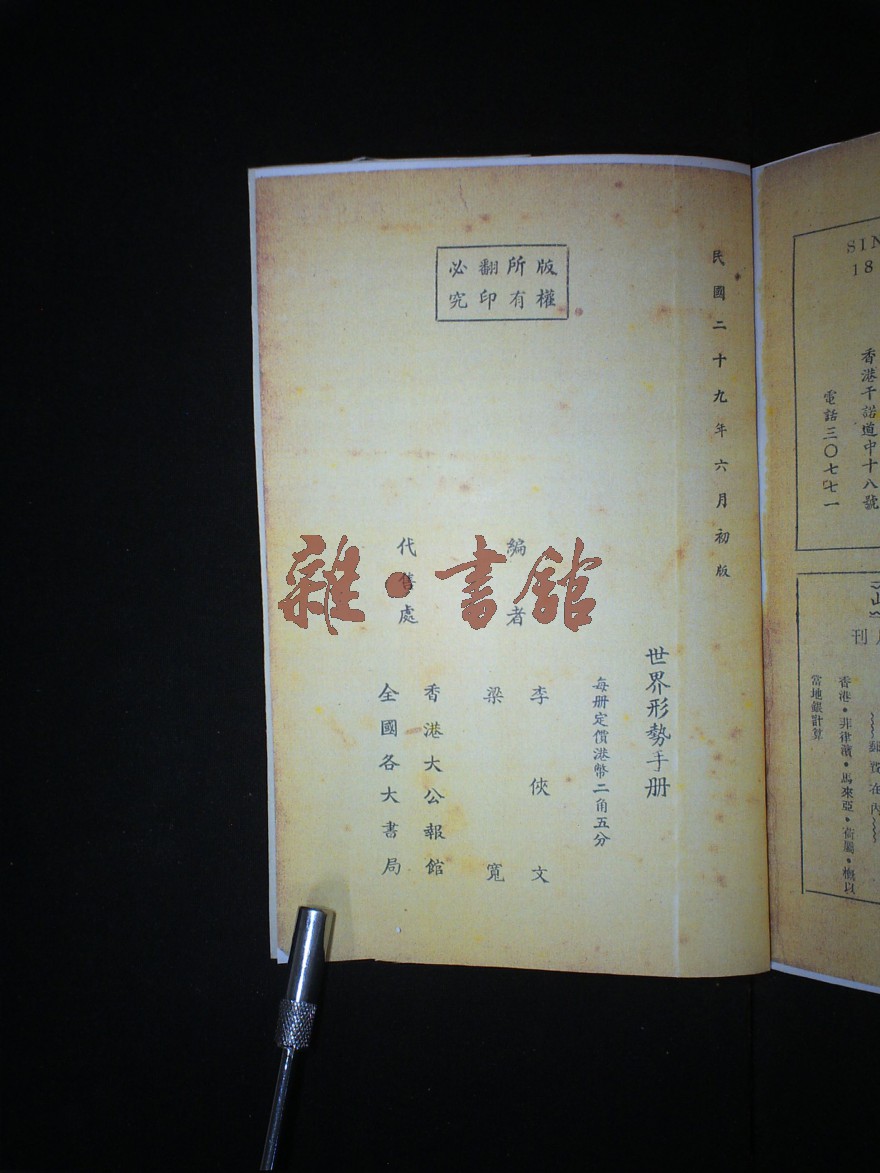 SIN
18
香港干諾道中十八號
電話三〇七七一
刊
香港・菲律濱・馬來亞・荷屬・概以
當地銀計算
民國二十九年六月初版
版權
所有
翻印
必究
世界形勢手册
每册定價港幣二角五分
編者
李俠文
梁寬
代售處
香港大公報館
全國各大書局
雜・書館